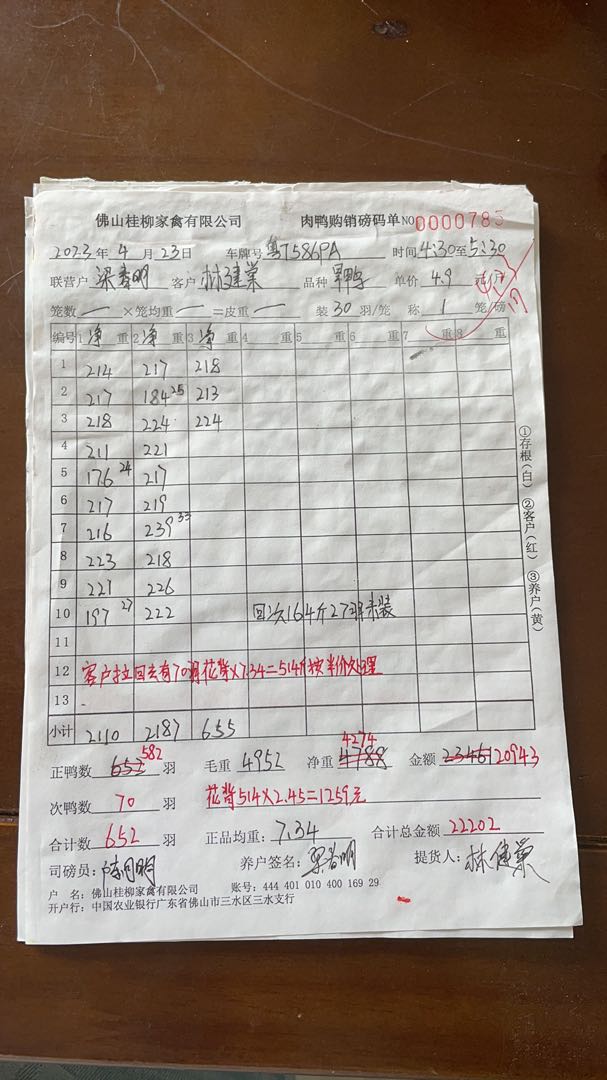 佛山桂柳家禽有限公司 肉鸭购销磅码单 NO 0000785
2023年 4 月 23日 车牌号 粤T586PA 时间 4:30至5:30
联营户 梁春明 客户 林建棠 品种 单价 4.9 元/斤
笼数 一 ×笼均重 一 =皮重 一 装 30 羽/笼 称 1 笼/磅
编号 1 净 重 2 净 重 3 净 重 4 重 5 重 6 重 7 重 8 重
1 214 217 218
2 217 184 25 213
3 218 224 224
4 211 221
5 176 24 217
6 217 219
7 216 239 33
8 223 218
9 221 226
10 197 27 222 回次164斤27羽未装
11
12 客户拉回去有70羽花背×7.34=514斤按半价处理
13
小计 2110 2187 655
正鸭数 652 582 羽 毛重 4952 净重 4788 4274 金额 23461 20943
次鸭数 70 羽 花背514×2.45=1259元
合计数 652 羽 正品均重: 7.34 合计总金额 22202
司磅员: 养户签名: 梁春明 提货人: 林建棠
户 名: 佛山桂柳家禽有限公司 账号: 444 401 010 400 169 29
开户行: 中国农业银行广东省佛山市三水区三水支行
①存根(白) ②客户(红) ③养户(黄)